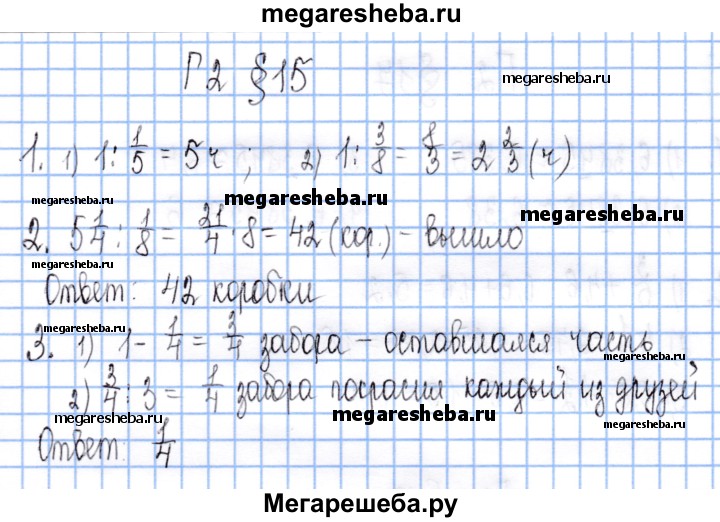 megaresheba.ru
Г2 §15
megaresheba.ru
1. 1) 1 : 1/5 = 5ч ; 2) 1 : 3/8 = 8/3 = 2 2/3 (ч)
megaresheba.ru megaresheba.ru megaresheba.ru
2. 5 1/4 : 1/8 = 21/4 · 8 = 42 (кор.) – вышло
megaresheba.ru
Ответ: 42 коробки
megaresheba.ru
3. 1) 1 - 1/4 = 3/4 забора – оставшался часть
2) 3/4 : 3 = 1/4 забора покрасил каждый из друзей
megaresheba.ru megaresheba.ru
Ответ: 1/4
Мегарешеба.ру